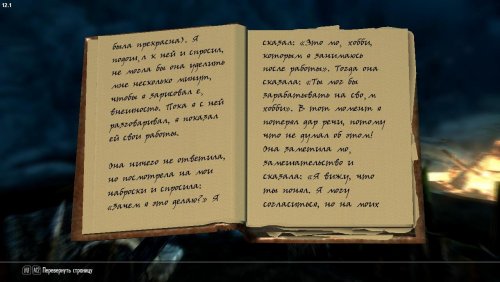 12.1
была прекрасна). Я
подош,л к ней и спросил,
не могла бы она уделить
мне несколько минут,
чтобы я зарисовал е,
внешность. Пока я с ней
разговаривал, я показал
ей свои работы.
Она ничего не ответила,
но посмотрела на мои
наброски и спросила:
«Зачем я это делаю?» Я
сказал: «Это мо, хобби,
которым я занимаюсь
после работы». Тогда она
сказала: «Ты мог бы
зарабатывать на сво,м
хобби». В тот момент я
потерял дар речи, потому
что не думал об этом!
Она заметила мо,
замешательство и
сказала: «Я вижу, что
ты понял. Я могу
согласиться, но на моих
Перевернуть страницу